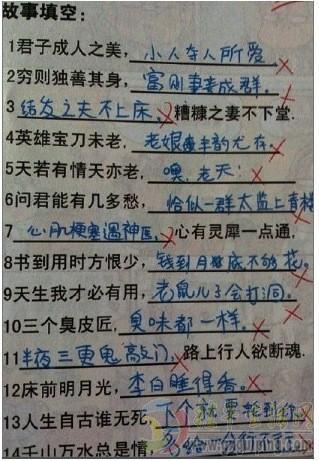 故事填空：
1君子成人之美，小人夺人所爱
2穷则独善其身，富则妻妾成群。
3结发之夫不上床，糟糠之妻不下堂.
4英雄宝刀未老，老娘风韵尤存。
5天若有情天亦老，噢，老天！
6问君能有几多愁，恰似一群太监上青楼
7心肌梗塞遇神医，心有灵犀一点通。
8书到用时方恨少，钱到月底不够花。
9天生我才必有用，老鼠儿子会打洞。
10三个臭皮匠，臭味都一样。
11半夜三更鬼敲门，路上行人欲断魂.
12床前明月光，李白睡得香。
13人生自古谁无死，下个就要轮到你
14千山万水总是情，多给一分行不行